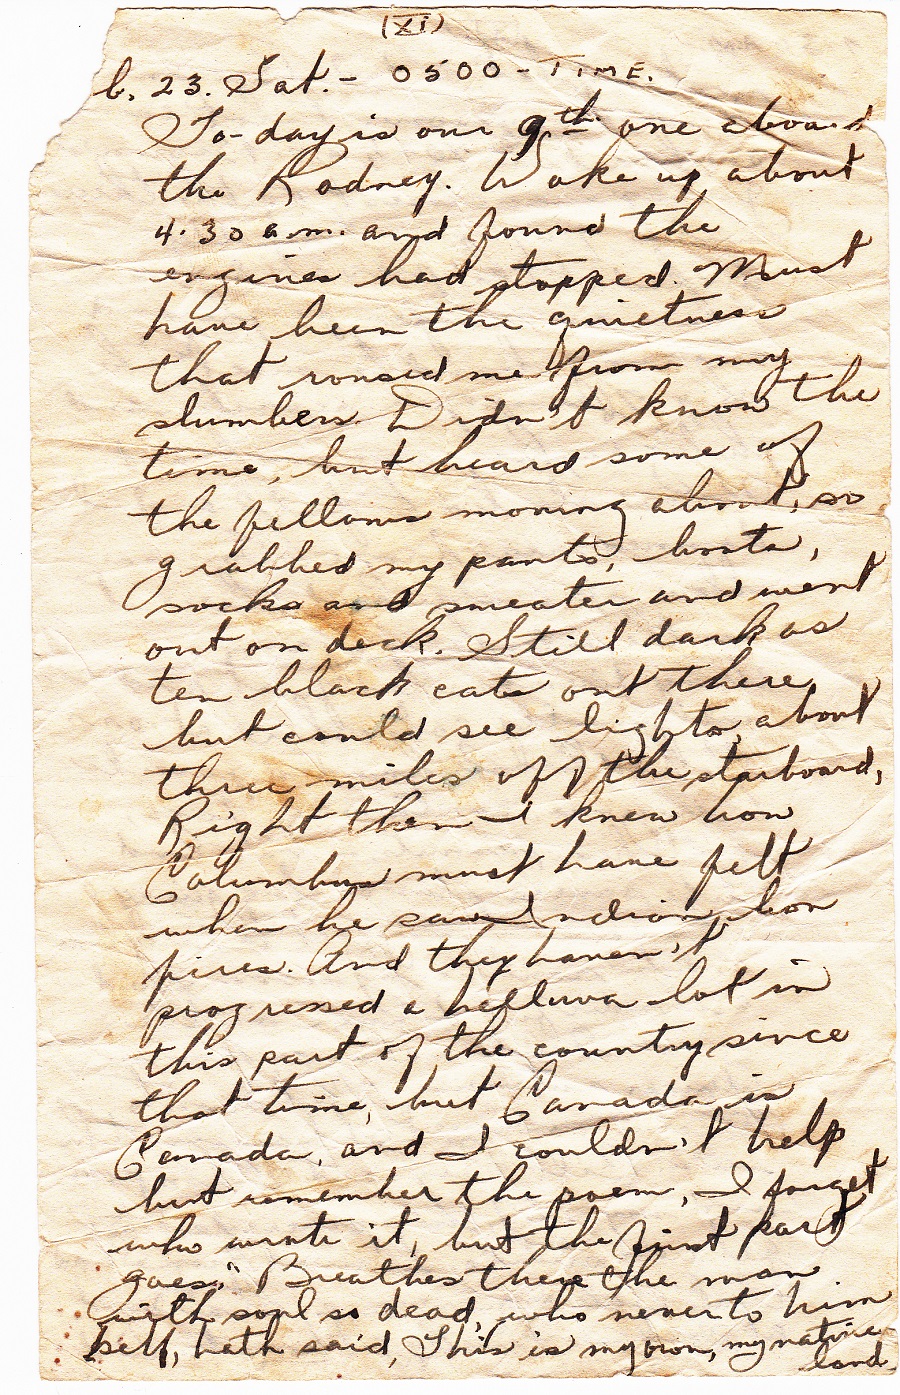 (XI)
b. 23. Sat. - 0500 - TIME.
To-day is our 9th one aboard
the Rodney. Woke up about
4.30 a.m. and found the
engines had stopped. Must
have been the quietness
that roused me from my
slumbers. Didn't know the
time, but heard some of
the fellows moving about, so
grabbed my pants, boots,
socks and sweater and went
out on deck. Still dark as
ten black cats out there
but could see lights, about
three miles off the starboard,
Right then I knew how
Columbus must have felt
when he saw Indian bon
fires. And they haven't
progressed a helluva lot in
this part of the country since
that time, but Canada is
Canada, and I couldn't help
but remember the poem, I forget
who wrote it, but the first part
goes," Breathes there the man
with soul so dead, who never to him
self, hath said, This is my own, my native
land.